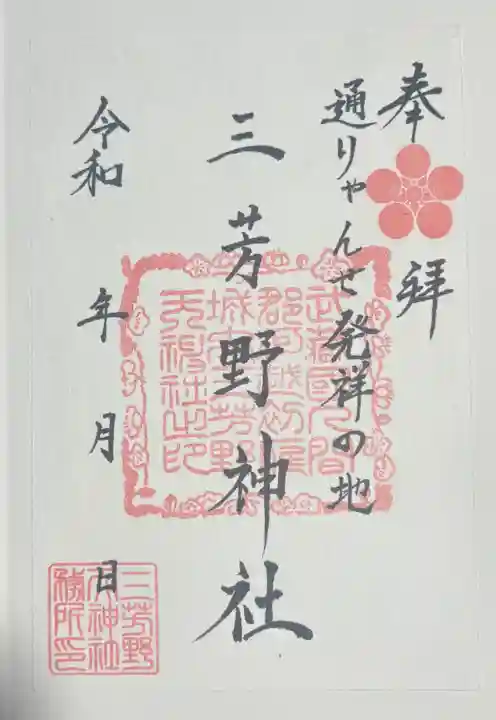 奉拝
通りゃんせ発祥の地
三芳野神社
令和 年 月 日
武蔵国入間
郡河越初雁
城内三芳野
天神社之印
三芳野
神社
務所印